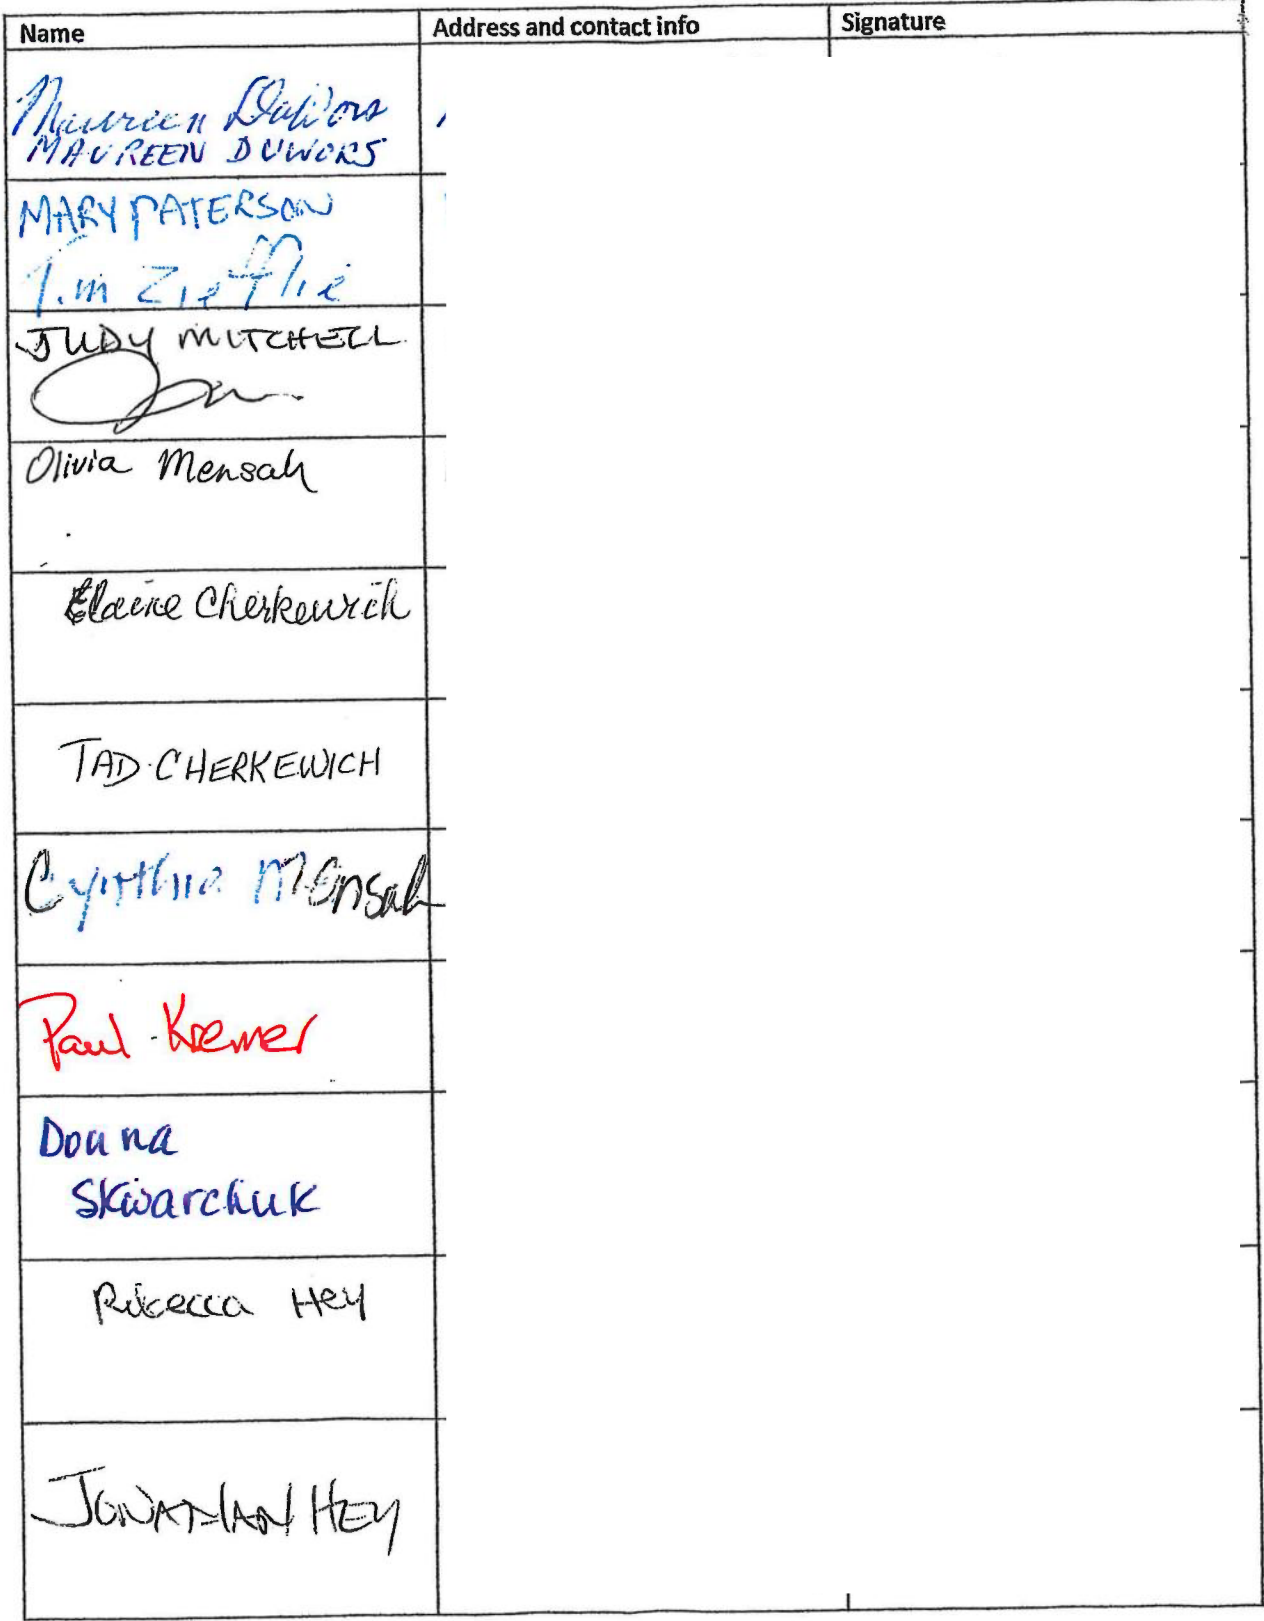 Name Address and contact info Signature
Maureen DuWors
MAUREEN DUWORS
MARY PATERSON
Tim
JUDY MITCHELL
Olivia Mensah
Elaine Cherkewich
TAD CHERKEWICH
Cynthia Mensah
Paul Kremer
Donna
Skwarchuk
Rebecca Hey
JONATHAN HEY